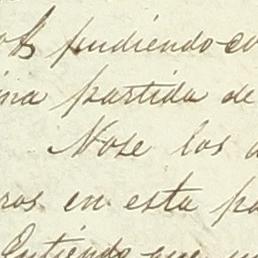 pudiendo
partida de
Nose los
en esta
Entiendo que